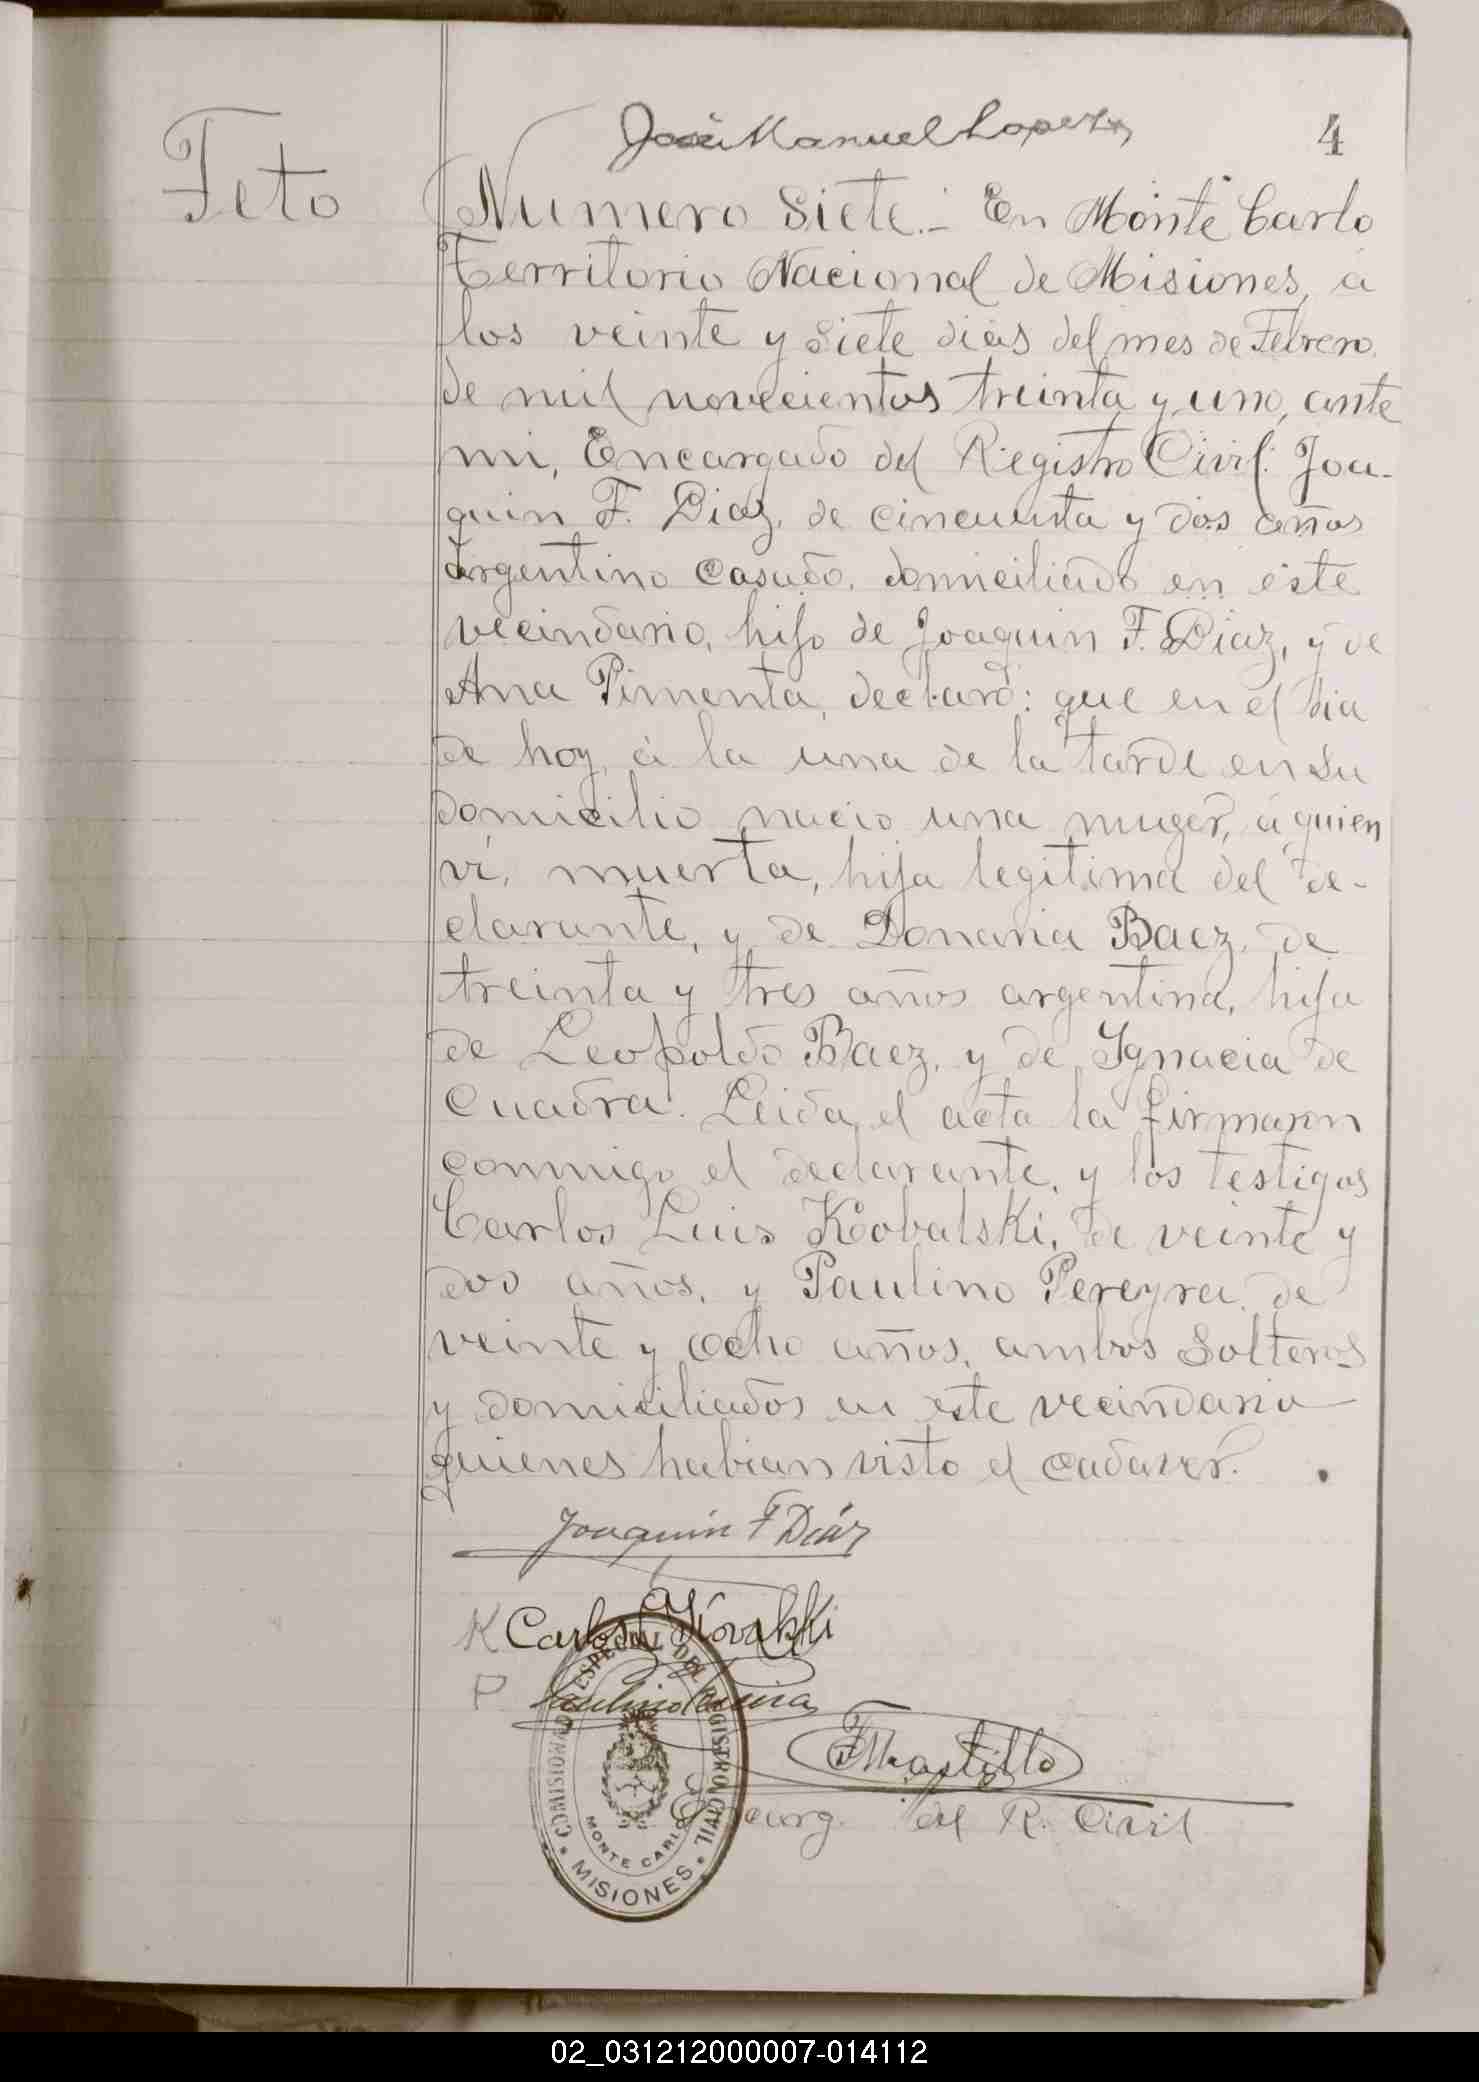 José Manuel Lopez
4
Feto
Numero Siete.- En Monte Carlo
Territorio Nacional de Misiones, á
los veinte y siete dias del mes de Febrero
de mil novecientos treinta y uno, ante
mi, Encargado del Registro Civil: Joa-
quin F. Diaz, de cincuenta y dos años
argentino casado, domiciliado en este
vecindario, hijo de Joaquin F. Diaz, y de
Ana Pimenta, declaró: que en el dia
de hoy, á la una de la tarde en su
domicilio nacio una muger, á quien
ví, muerta, hija legitima del de-
clarante, y de Donaria Baez, de
treinta y tres años argentina, hija
de Leopoldo Baez, y de Ignacia de
Cuadra. Leida el acta la firmaron
conmigo el declarante, y los testigos
Carlos Luis Kobalski, de veinte y
dos años, y Paulino Pereyra, de
veinte y ocho años, ambos Solteros
y domiciliados en este vecindario
quienes habian visto el cadaver.
Joaquin F Diaz
K Carlos L Kovalski
P Paulino Pereira
Encarg. del R. Civil
COMISIONADO ESPECIAL DEL REGISTRO CIVIL
MONTE CARLO
MISIONES
02_031212000007-014112